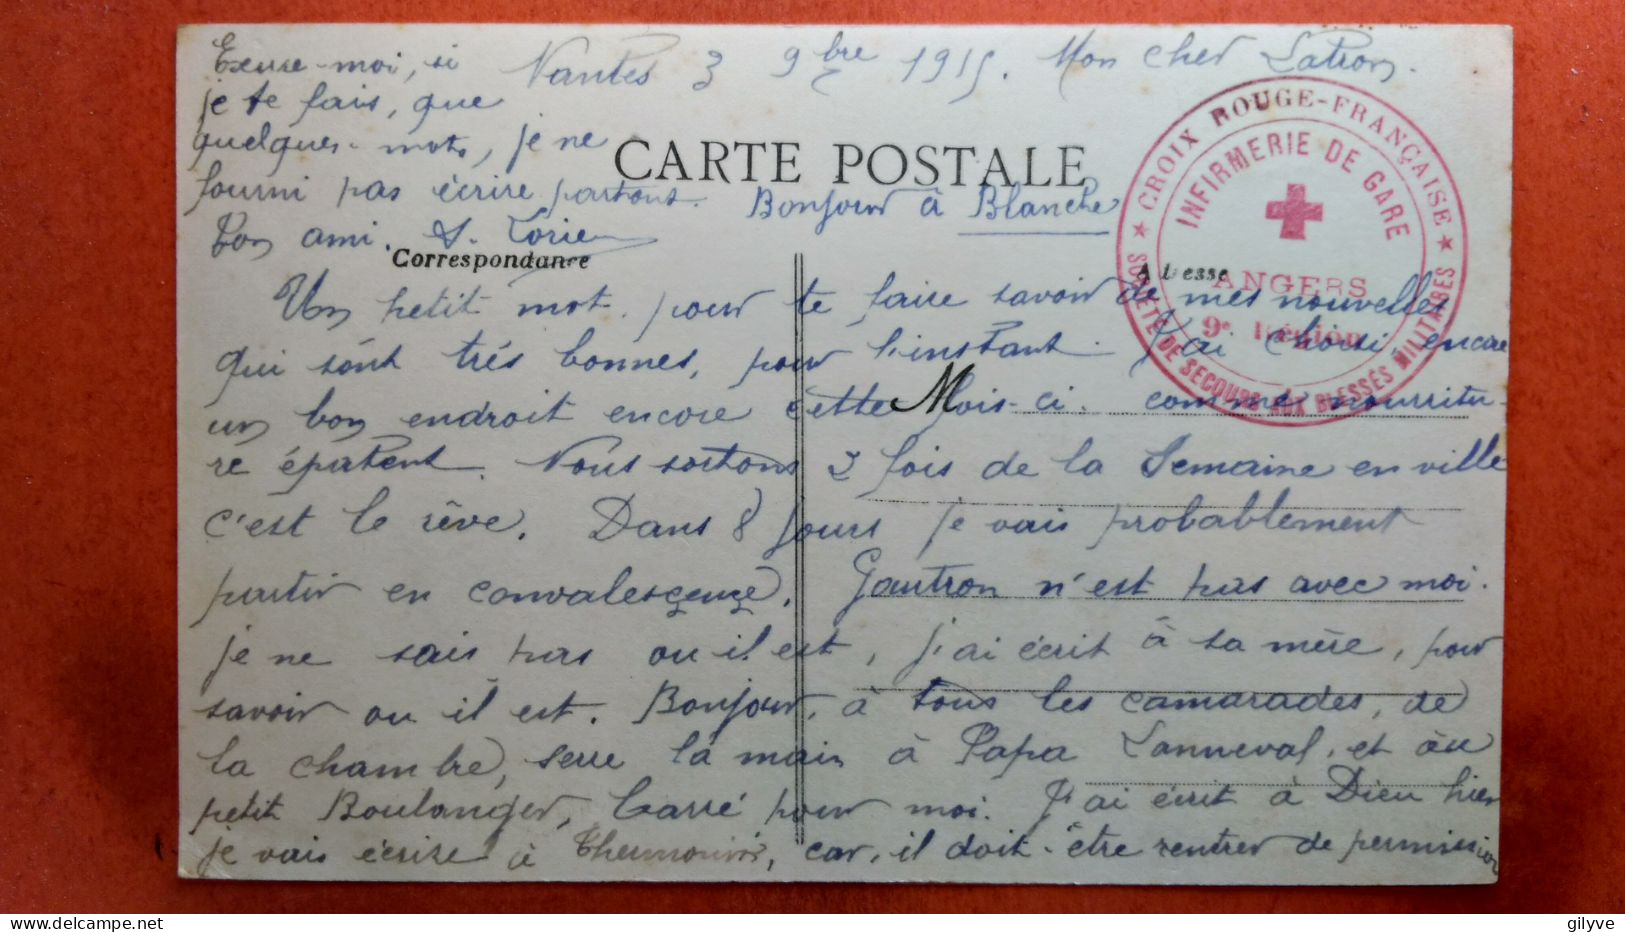 Nantes 3 9bre 1915. Mon cher Latron.
Excuse-moi, si
je te fais, que
quelques mots, je ne
fourni pas écrire partout. Bonjour à Blanche
Ton ami. S. Lorie
CARTE POSTALE
Correspondance
Adresse
CROIX ROUGE-FRANÇAISE
SOCIÉTÉ DE SECOURS AUX BLESSÉS MILITAIRES
INFIRMERIE DE GARE
ANGERS
9e Région
Un petit mot. pour te faire savoir de mes nouvelles
qui sont trés bonnes, pour l'instant. J'ai choisi encore
un bon endroit encore cette Mois-ci. comme nourritu-
re épatent. Nous sortons 2 fois de la Semaine en ville
c'est le rêve. Dans 8 jours je vais probablement
partir en convalescence. Gautron n'est pas avec moi.
je ne sais pas ou il est, j'ai écrit à sa mère, pour
savoir ou il est. Bonjour, à tous les camarades, de
la chambre, serre la main à Papa Lanneval, et au
petit Boulanger, Carré pour moi. J'ai écrit à Dieu hier
je vais écrire à car, il doit être rentrer de permission
gilyve